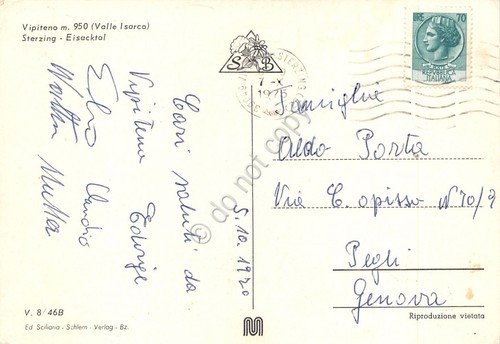 Vipiteno m. 950 (Valle Isarco)
Sterzing - Eisacktal
S B
LIRE 70
REPUBBLICA
ITALIANA
Cari saluti da
Vipiteno Edvige
Elvo Claudio
5.10.1970
Famiglia
Aldo Porta
Via C. opisso N 70/9
Pegli
Genova
do not copy
V. 8/46B
Ed Sciliana - Schlern - Verlag - Bz.
Riproduzione vietata